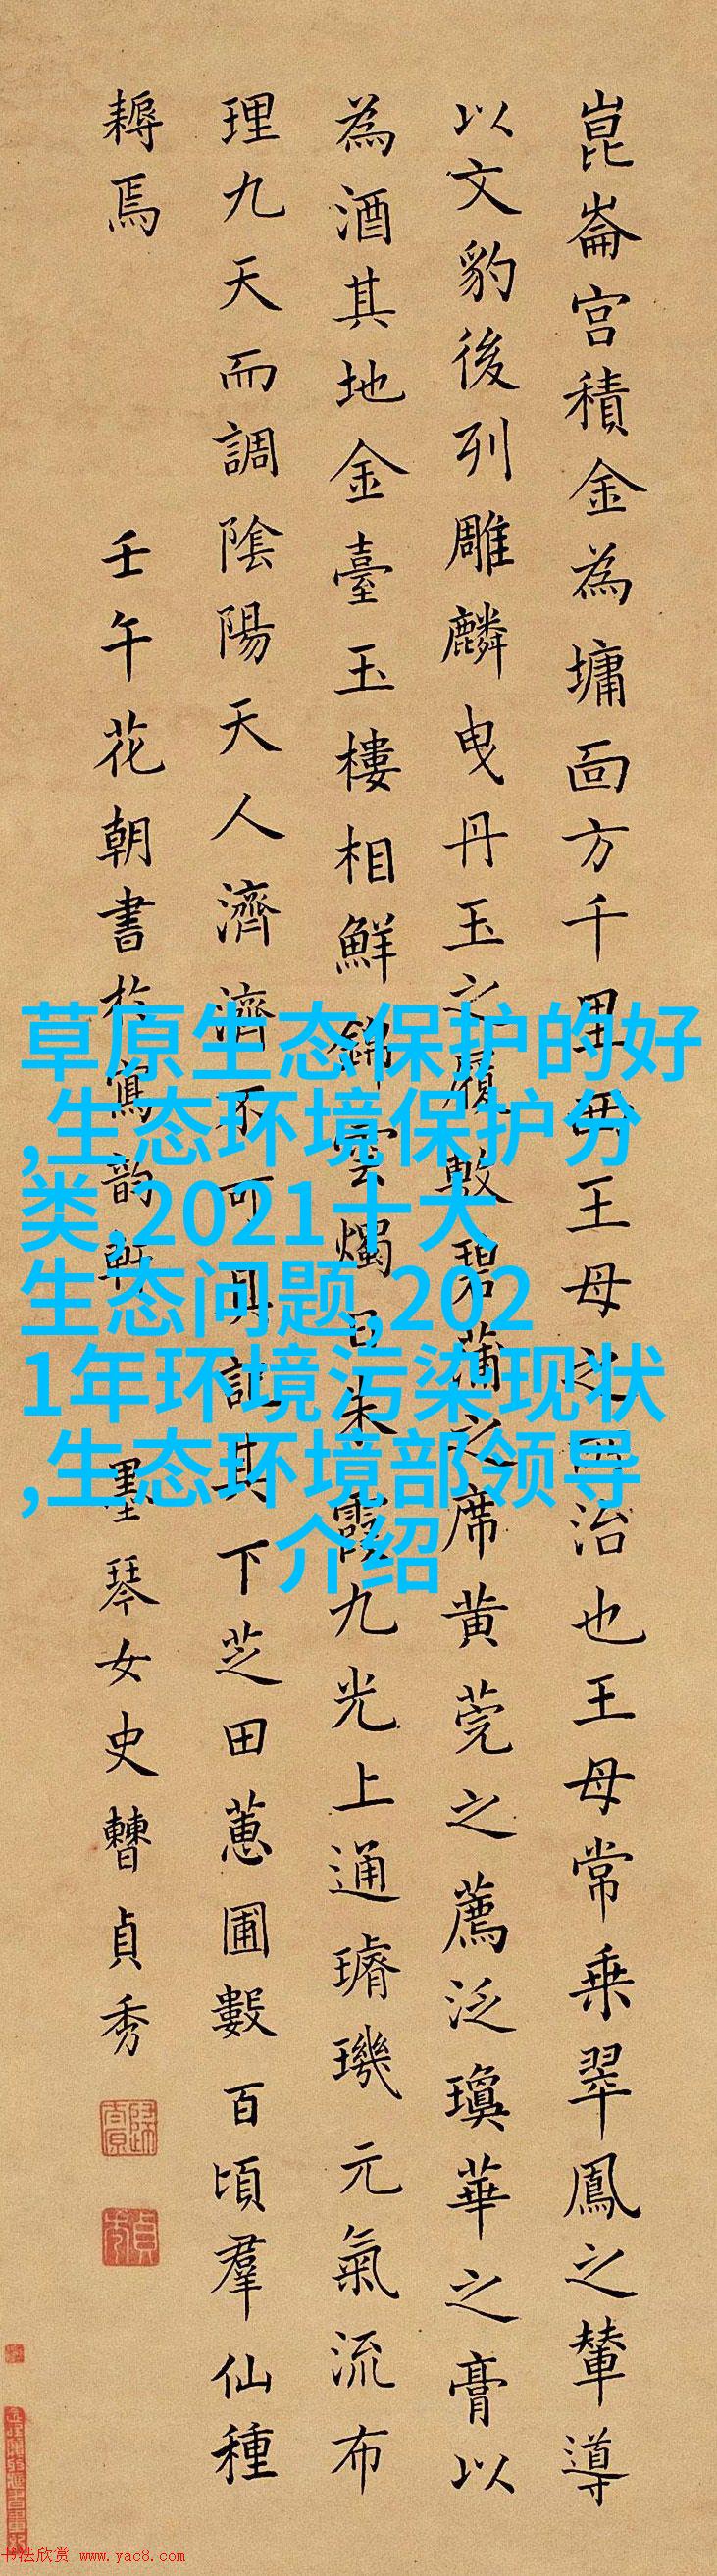 崑崙宫積金為墉面方千里西王母之所治也王母常乗翠鳳之輦導
以文豹後列雕麟曳丹玉之履敷碧蒲之席黄莞之薦泛瓊華之膏以
為酒其地金臺玉樓相鮮錦雲燭日朱霞九光上通璿璣元氣流布
理九天而調陰陽天人濟濟不可具記其下芝田蕙圃數百頃羣仙種
耨焉
壬午花朝書於寫韵軒 墨琴女史曹貞秀
草原生态保护的好
,生态环境保护分
类,2021十大
生态问题,202
1年环境污染现状
,生态环境部领导
介绍
书法欣赏 www.yac8.com